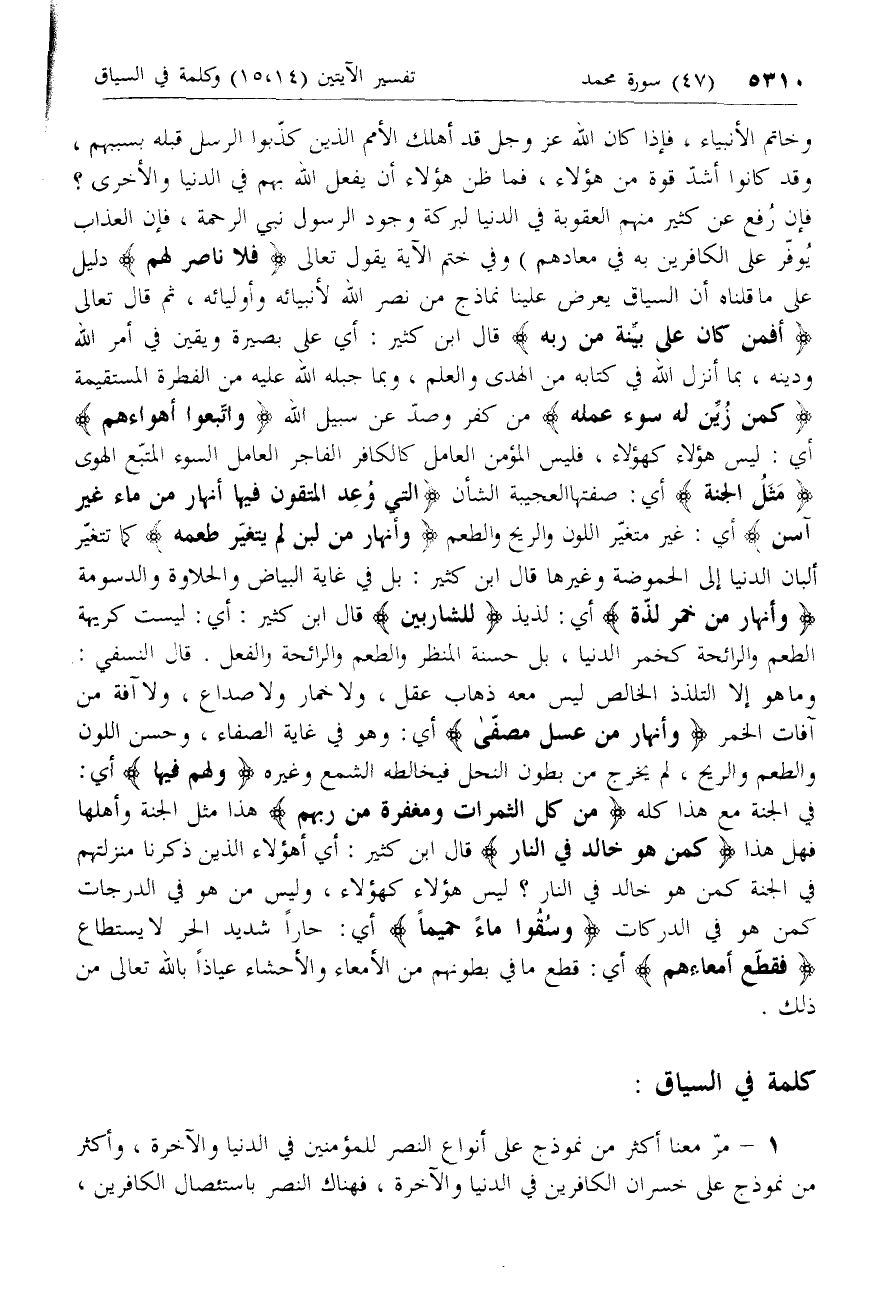 ٥٣١٠ (٤٧) سورة محمد تفسير الآيتين (١٥،١٤) وكلمة في السياق
وخاتم الأنبياء ، فإذا كان الله عز وجل قد أهلك الأمم الذين كذّبوا الرسل قبله بسببهم ،
وقد كانوا أشدّ قوة من هؤلاء ، فما ظن هؤلاء أن يفعل الله بهم في الدنيا والأخرى ؟
فإن رُفع عن كثير منهم العقوبة في الدنيا لبركة وجود الرسول نبي الرحمة ، فإن العذاب
يُوفّر على الكافرين به في معادهم ) وفي ختم الآية يقول تعالى ﴿ فلا ناصر لهم ﴾ دليل
على ماقلناه أن السياق يعرض علينا نماذج من نصر الله لأنبيائه وأوليائه ، ثم قال تعالى
﴿ أفمن كان على بيِّنة من ربه ﴾ قال ابن كثير : أي على بصيرة ويقين في أمر الله
ودينه ، بما أنزل الله في كتابه من الهدى والعلم ، وبما جبله الله عليه من الفطرة المستقيمة
﴿ كمن زُيِّن له سوء عمله ﴾ من كفر وصدّ عن سبيل الله ﴿ واتّبعوا أهواءهم ﴾
أي : ليس هؤلاء كهؤلاء ، فليس المؤمن العامل كالكافر الفاجر العامل السوء المتبّع الهوى
﴿ مَثَلُ الجنة ﴾ أي : صفتهاالعجيبة الشأن ﴿ التي وُعِد المتقون فيها أنهار من ماء غير
آسن ﴾ أي : غير متغيّر اللون والريح والطعم ﴿ وأنهار من لبن لم يتغيّر طعمه ﴾ كما تتغيّر
ألبان الدنيا إلى الحموضة وغيرها قال ابن كثير : بل في غاية البياض والحلاوة والدسومة
﴿ وأنهار من خمر لذّة ﴾ أي : لذيذ ﴿ للشاربين ﴾ قال ابن كثير : أي : ليست كريهة
الطعم والرائحة كخمر الدنيا ، بل حسنة المنظر والطعم والرائحة والفعل . قال النسفي :
وماهو إلا التلذذ الخالص ليس معه ذهاب عقل ، ولاخمار ولاصداع ، ولاآفة من
آفات الخمر ﴿ وأنهار من عسل مصفّىٰ ﴾ أي : وهو في غاية الصفاء ، وحسن اللون
والطعم والريح ، لم يخرج من بطون النحل فيخالطه الشمع وغيره ﴿ ولهم فيها ﴾ أي :
في الجنة مع هذا كله ﴿ من كل الثمرات ومغفرة من ربهم ﴾ هذا مثل الجنة وأهلها
فهل هذا ﴿ كمن هو خالد في النار ﴾ قال ابن كثير : أي أهؤلاء الذين ذكرنا منزلتهم
في الجنة كمن هو خالد في النار ؟ ليس هؤلاء كهؤلاء ، وليس من هو في الدرجات
كمن هو في الدركات ﴿ وسُقُوا ماءً حميماً ﴾ أي : حاراً شديد الحر لايستطاع
﴿ فقطّع أمعاءهم ﴾ أي : قطع مافي بطونهم من الأمعاء والأحشاء عياذاً بالله تعالى من
ذلك .
كلمة في السياق :
١ – مرّ معنا أكثر من نموذج على أنواع النصر للمؤمنين في الدنيا والآخرة ، وأكثر
من نموذج على خسران الكافرين في الدنيا والآخرة ، فهناك النصر باستئصال الكافرين ،